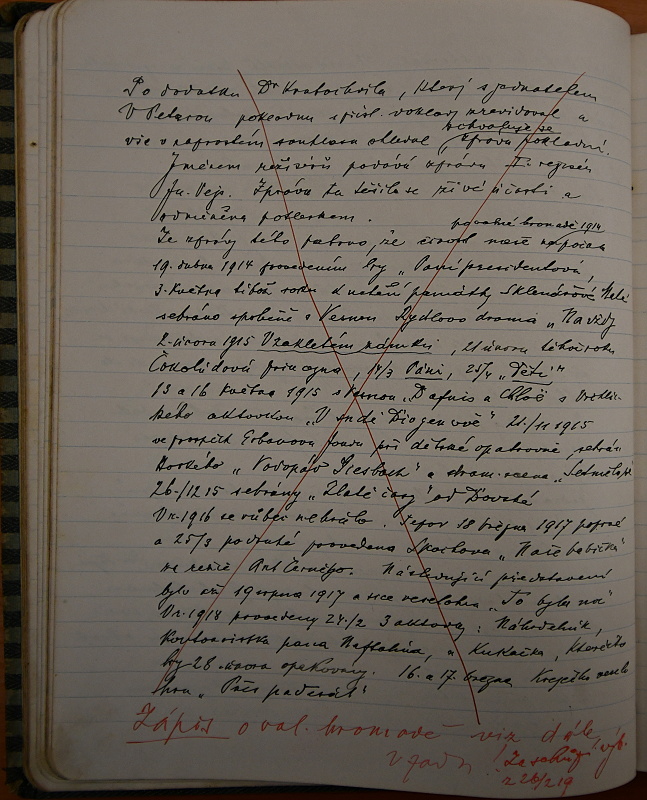 Po dodatku Dr Kratochvila, který s jednatelem
V Peterou pokladnu s účet. doklady zrevidoval a
vše v naprostém souhlasu shledal, schvaluje se zpráva pokladní.
Jménem režisérů podává zprávu I. regisér
Fr. Vejs. Zpráva ta těšila se živé účasti a
odměněna potleskem.
povalné hromadě 1914
Ze zprávy této patrno, že činnost naše započala
19. dubna 1914 provedením hry „Paní presidentová,
3. května téhož roku k uctění památky Sklenářové Malé
sehráno společně s Vesnou Rydlovo drama „Na vždy
2. února 1915 V zakletém zámku, 21 února téhož roku
Čokoládová princezna, 14/3 Páni, 25/4 „Děti"
13 a 16 května 1915 s Vesnou „Dafnis a Chloë s Vrchlic-
kého aktovkou „V sudě Diogenově" 21./11 1915
ve prospěch Erbanova fondu při dětské opatrovně, sehrán
Horkého „Vodopád Giesbach" a dram. scena
26./12 15 sehrány „Zlaté časy" od
V r. 1916 se vůbec nehrálo. Teprv 18 března 1917 poprvé
a 25/3 podruhé provedena Skochova „Naše babička"
ve režii Ant Černého. Následující představení
bylo až 19 srpna 1917 a sice veselohra „To byla noc"
V r. 1918 provedeny 24./2 3 aktovky: Náhrdelník,
pana Naftalína, a Kukačka,
hry 28. února opakovány. 16. a 17. března Krejčího veselo
hra „Přes padesát"
Zápis o val. hromadě viz dále
vzadu!
Ze schůze výb.
z 26/2 19